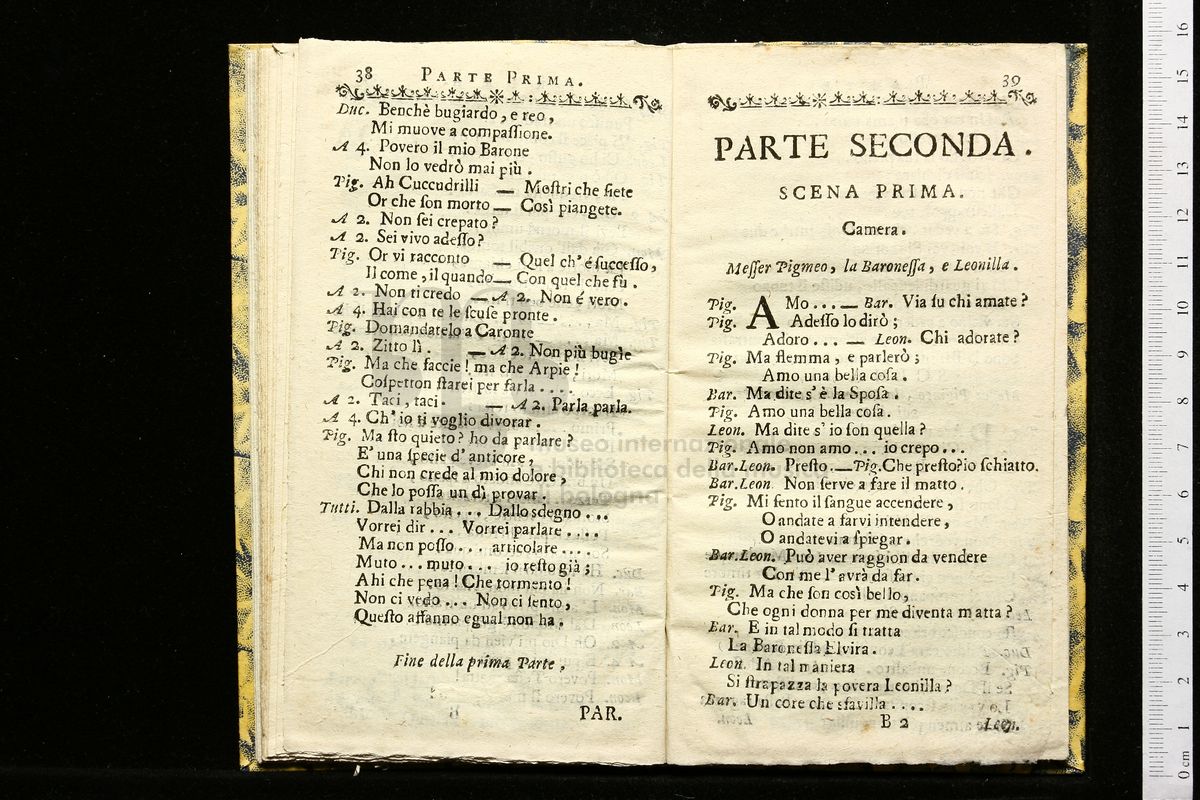 38 PARTE PRIMA.
Duc. Benchè bugiardo, e reo,
Mi muove a compaſſione.
A 4. Povero il mio Barone
Non lo vedrò mai più.
Pig. Ah Cuccudrilli — Moſtri che ſiete
Or che ſon morto — Così piangete.
A 2. Non ſei crepato?
A 2. Sei vivo adeſſo?
Pig. Or vi racconto — Quel ch' é ſucceſſo,
Il come, il quando — Con quel che fù.
A 2. Non ti credo — A 2. Non é vero.
A 4. Hai con te le ſcuſe pronte.
Pig. Domandatelo a Caronte
A 2. Zitto lì. — A 2. Non più bugìe
Pig. Ma che faccie! ma che Arpie!
Coſpetton ſtarei per farla ....
A 2. Taci, taci. — A 2. Parla, parla.
A 4. Ch' io ti voglio divorar.
Pig. Ma ſto quieto? ho da parlare?
E' una ſpecie d' anticore,
Chi non crede al mio dolore,
Che lo poſſa un dì provar.
Tutti. Dalla rabbia ... Dallo sdegno ...
Vorrei dir ... Vorrei parlare ....
Ma non poſſo ... articolare ....
Muto ... muto ... io reſto già;
Ahi che pena! Che tormento!
Non ci vedo ... Non ci ſento,
Queſto affanno egual non ha.
Fine della prima Parte,
PAR.
39
PARTE SECONDA.
SCENA PRIMA.
Camera.
Meſſer Pigmeo, la Baroneſſa, e Leonilla.
Pig. AMo ... — Bar. Via ſu chi amate?
Pig. Adeſſo lo dirò;
Adoro ... — Leon. Chi adorate?
Pig. Ma flemma, e parlerò;
Amo una bella coſa.
Bar. Ma dite s' è la Spoſa.
Pig. Amo una bella coſa.
Leon. Ma dite s' io ſon quella?
Pig. Amo non amo ... io crepo ...
Bar.Leon. Preſto. — Pig. Che preſto? io ſchiatto.
Bar.Leon. Non ſerve a fare il matto.
Pig. Mi ſento il ſangue accendere,
O andate a farvi intendere,
O andatevi a ſpiegar.
Bar.Leon. Può aver raggion da vendere
Con me l' avrà da far.
Pig. Ma che ſon così bello,
Che ogni donna per me diventa matta?
Bar. E in tal modo ſi tratta
La Baroneſſa Elvira.
Leon. In tal maniera
Si ſtrapazza la povera Leonilla?
Bar. Un core che sfavilla ....
B 2 Leon.
museo internazionale
e biblioteca della musica
di bologna
0 cm 1 2 3 4 5 6 7 8 9 10 11 12 13 14 15 16